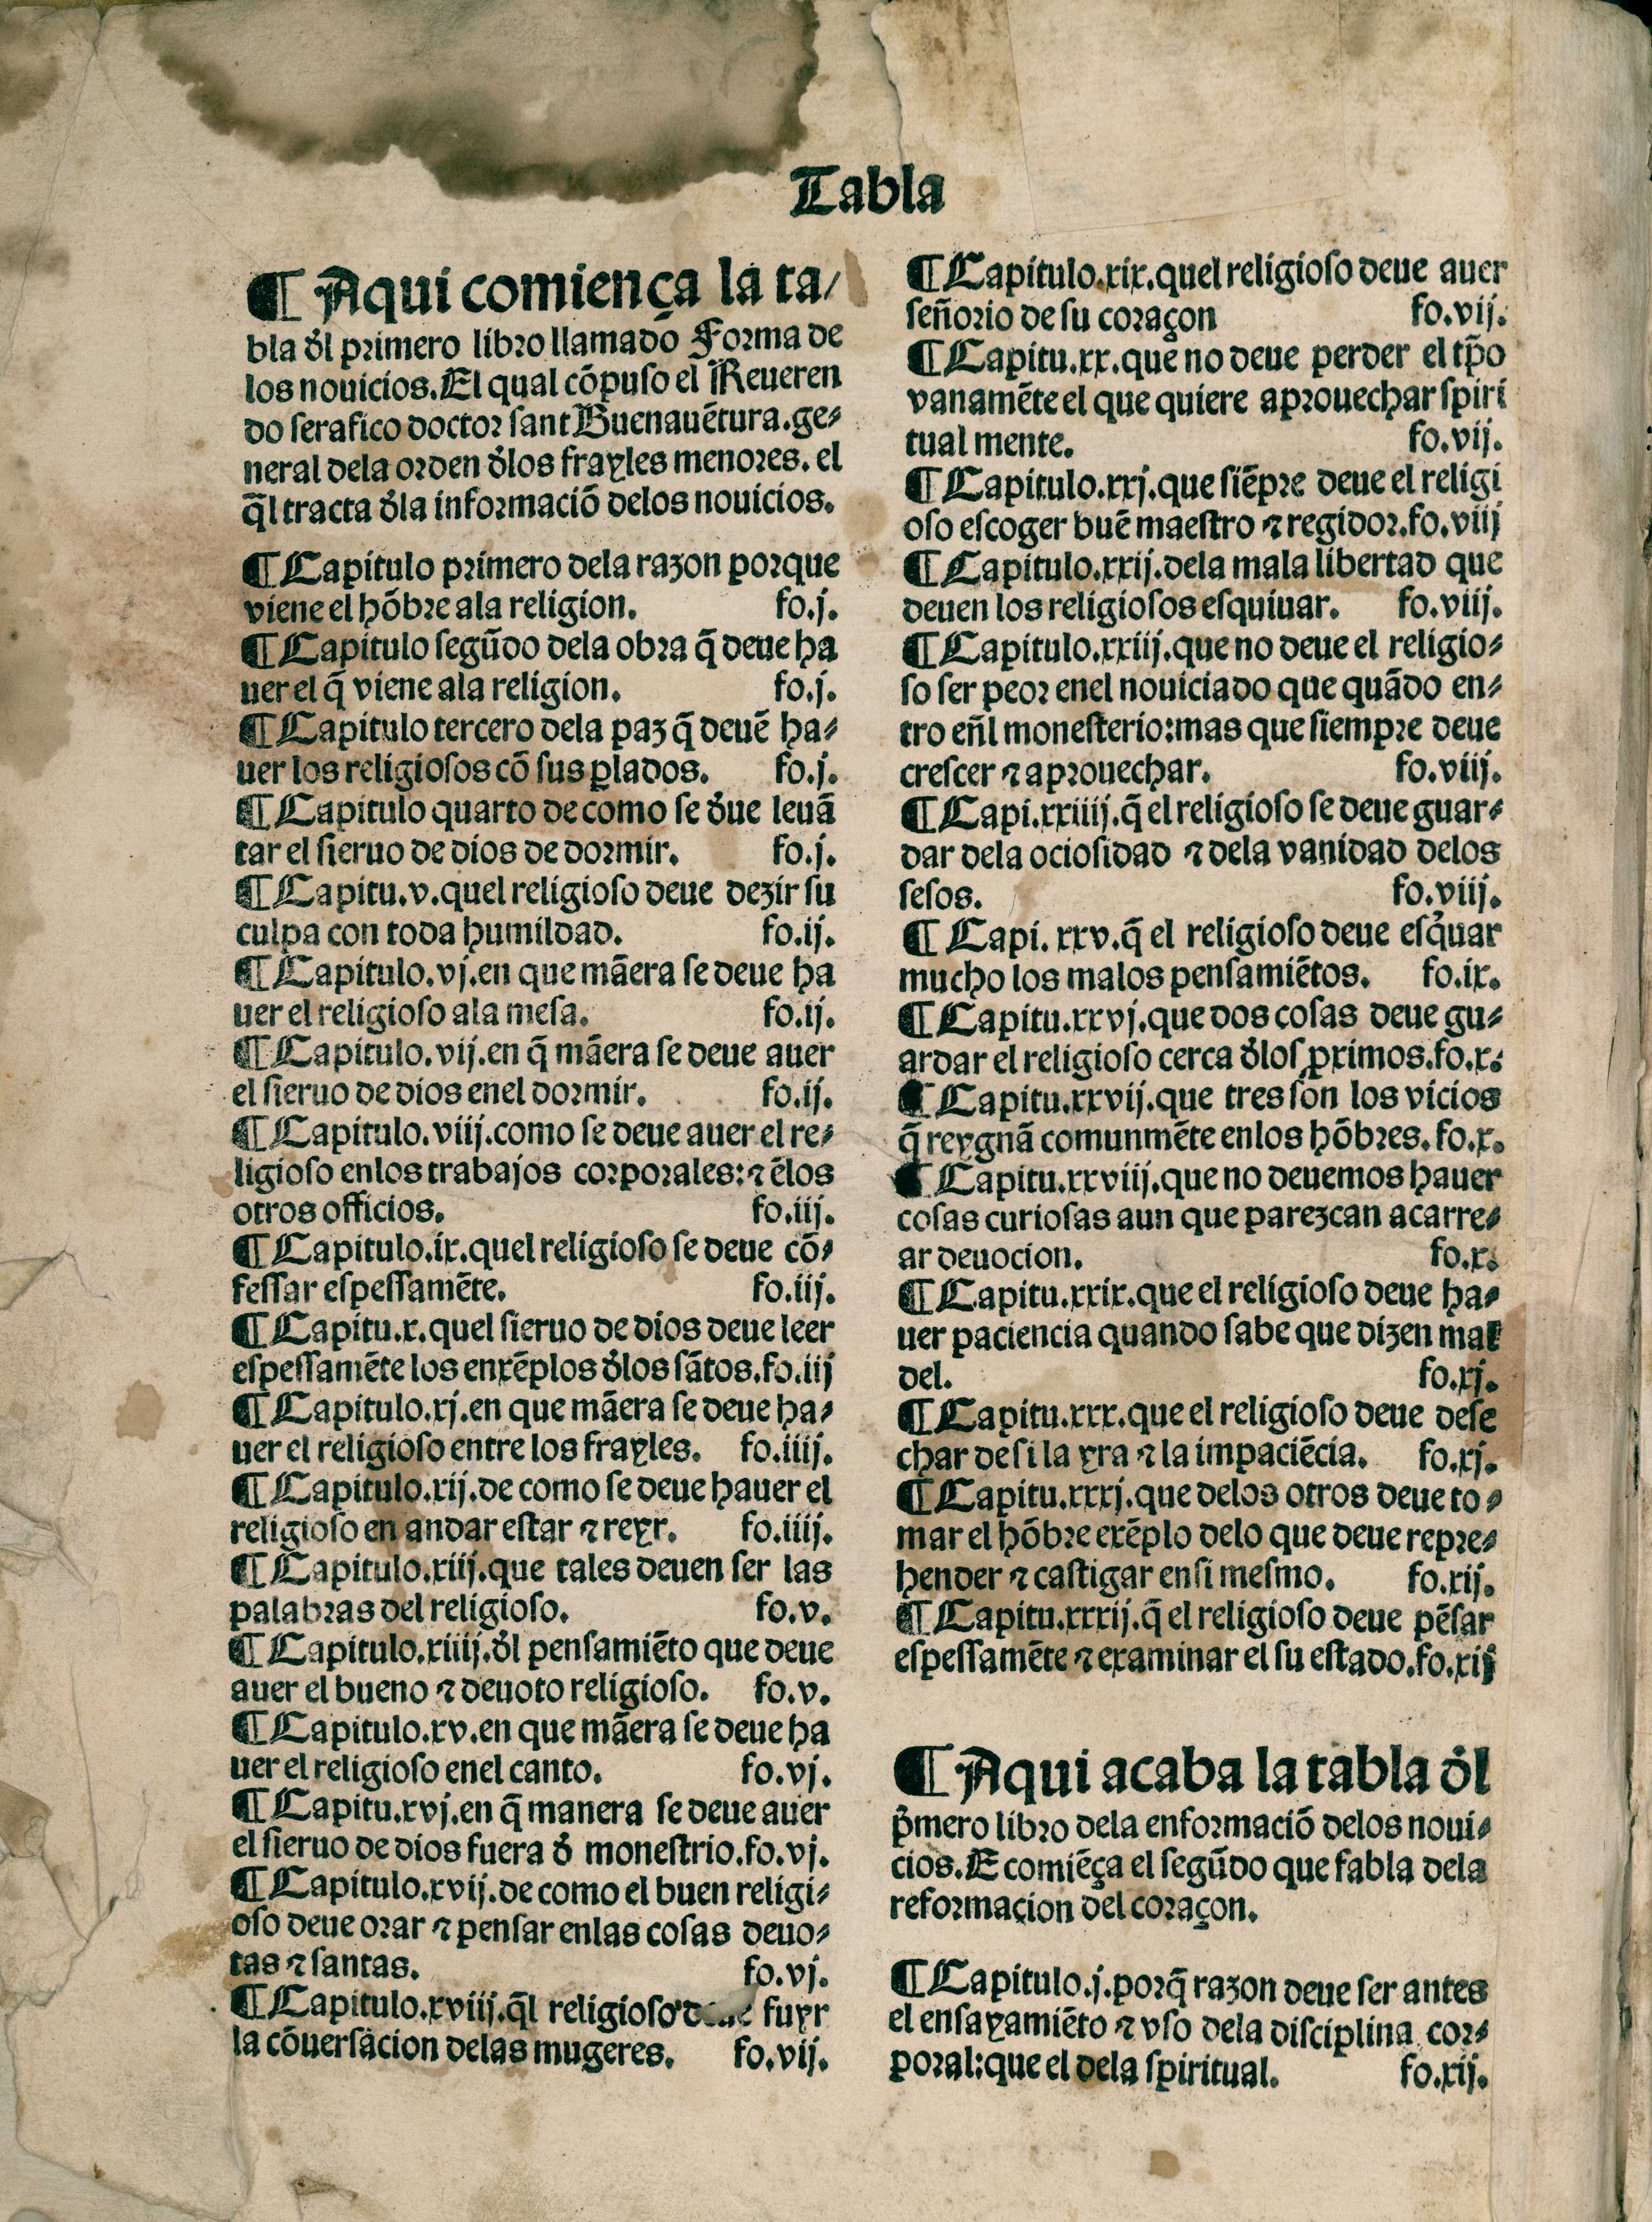 Tabla
¶ Aqui comiença la ta-
bla đl primero libro llamado Forma de
los nouicios. El qual cõpuso el Reueren
do serafico doctor sant Buenauẽtura. ge-
neral dela orden đlos frayles menores. el
q̃l tracta đla informaciõ delos nouicios.
¶ Capitulo primero dela razon porque
viene el hõbre ala religion. fo.j.
¶ Capitulo segũdo dela obra q̃ deue ha
uer el q̃ viene ala religion. fo.j.
¶ Capitulo tercero dela paz q̃ deuẽ ha-
uer los religiosos cõ sus ꝑlados. fo.j.
¶ Capitulo quarto de como se đue leuã
tar el sieruo de dios de dormir. fo.j.
¶ Capitu.v. quel religioso deue dezir su
culpa con toda humildad. fo.ij.
¶ Capitulo.vj. en que mãera se deue ha
uer el religioso ala mesa. fo.ij.
¶ Capitulo.vij. en q̃ mãera se deue auer
el sieruo de dios enel dormir. fo.ij.
¶ Capitulo.viij. como se deue auer el re-
ligioso enlos trabajos corporales: ⁊ ẽlos
otros officios. fo.iij.
¶ Capitulo.ix. quel religioso se deue cõ-
fessar espessamẽte. fo.iij.
¶ Capitu.x. quel sieruo de dios deue leer
espessamẽte los enxẽplos đlos sãtos. fo.iij
¶ Capitulo.xj. en que mãera se deue ha-
uer el religioso entre los frayles. fo.iiij.
¶ Capitulo.xij. de como se deue hauer el
religioso en andar estar ⁊ reyr. fo.iiij.
¶ Capitulo.xiij. que tales deuen ser las
palabras del religioso. fo.v.
¶ Capitulo.xiiij. đl pensamiẽto que deue
auer el bueno ⁊ deuoto religioso. fo.v.
¶ Capitulo.xv. en que mãera se deue ha
uer el religioso enel canto. fo.vj.
¶ Capitu.xvj. en q̃ manera se deue auer
el sieruo de dios fuera đ monestrio. fo.vj.
¶ Capitulo.xvij. de como el buen religi-
oso deue orar ⁊ pensar enlas cosas deuo-
tas ⁊ santas. fo.vj.
¶ Capitulo.xviij. q̃l religioso deue fuyr
la cõuersacion delas mugeres. fo.vij.
¶ Capitulo.xix. quel religioso deue auer
señorio de su coraçon fo.vij.
¶ Capitu.xx. que no deue perder el tp̃o
vanamẽte el que quiere aprouechar spiri
tual mente. fo.vij.
¶ Capitulo.xxj. que siẽpre deue el religi
oso escoger buẽ maestro ⁊ regidor. fo.viij
¶ Capitulo.xxij. dela mala libertad que
deuen los religiosos esquiuar. fo.viij.
¶ Capitulo.xxiij. que no deue el religio-
so ser peor enel nouiciado que quãdo en-
tro eñl monesterio: mas que siempre deue
crescer ⁊ aprouechar. fo.viij.
¶ Capi.xxiiij. q̃ el religioso se deue guar-
dar dela ociosidad ⁊ dela vanidad delos
sesos. fo.viij.
¶ Capi. xxv. q̃ el religioso deue esq̃uar
mucho los malos pensamiẽtos. fo.ix.
¶ Capitu.xxvj. que dos cosas deue gu-
ardar el religioso cerca đlos ꝓximos. fo.x.
¶ Capitu.xxvij. que tres son los vicios
q̃ reygnã comunmẽte enlos hõbres. fo.x.
¶ Capitu.xxviij. que no deuemos hauer
cosas curiosas aun que parezcan acarre-
ar deuocion. fo.x.
¶ Capitu.xxix. que el religioso deue ha-
uer paciencia quando sabe que dizen mal
del. fo.xj.
¶ Capitu.xxx. que el religioso deue dese
char de si la yra ⁊ la impaciẽcia. fo.xj.
¶ Capitu.xxxj. que delos otros deue to-
mar el hõbre exẽplo delo que deue repre-
hender ⁊ castigar ensi mesmo. fo.xij.
¶ Capitu.xxxij. q̃ el religioso deue pẽsar
espessamẽte ⁊ examinar el su estado. fo.xij
¶ Aqui acaba la tabla đl
p̃mero libro dela enformaciõ delos noui-
cios. E comiẽça el segũdo que fabla dela
reformaçion del coraçon.
¶ Capitulo.j. porq̃ razon deue ser antes
el ensayamiẽto ⁊ vso dela disciplina cor-
poral: que el dela spiritual. fo.xij.